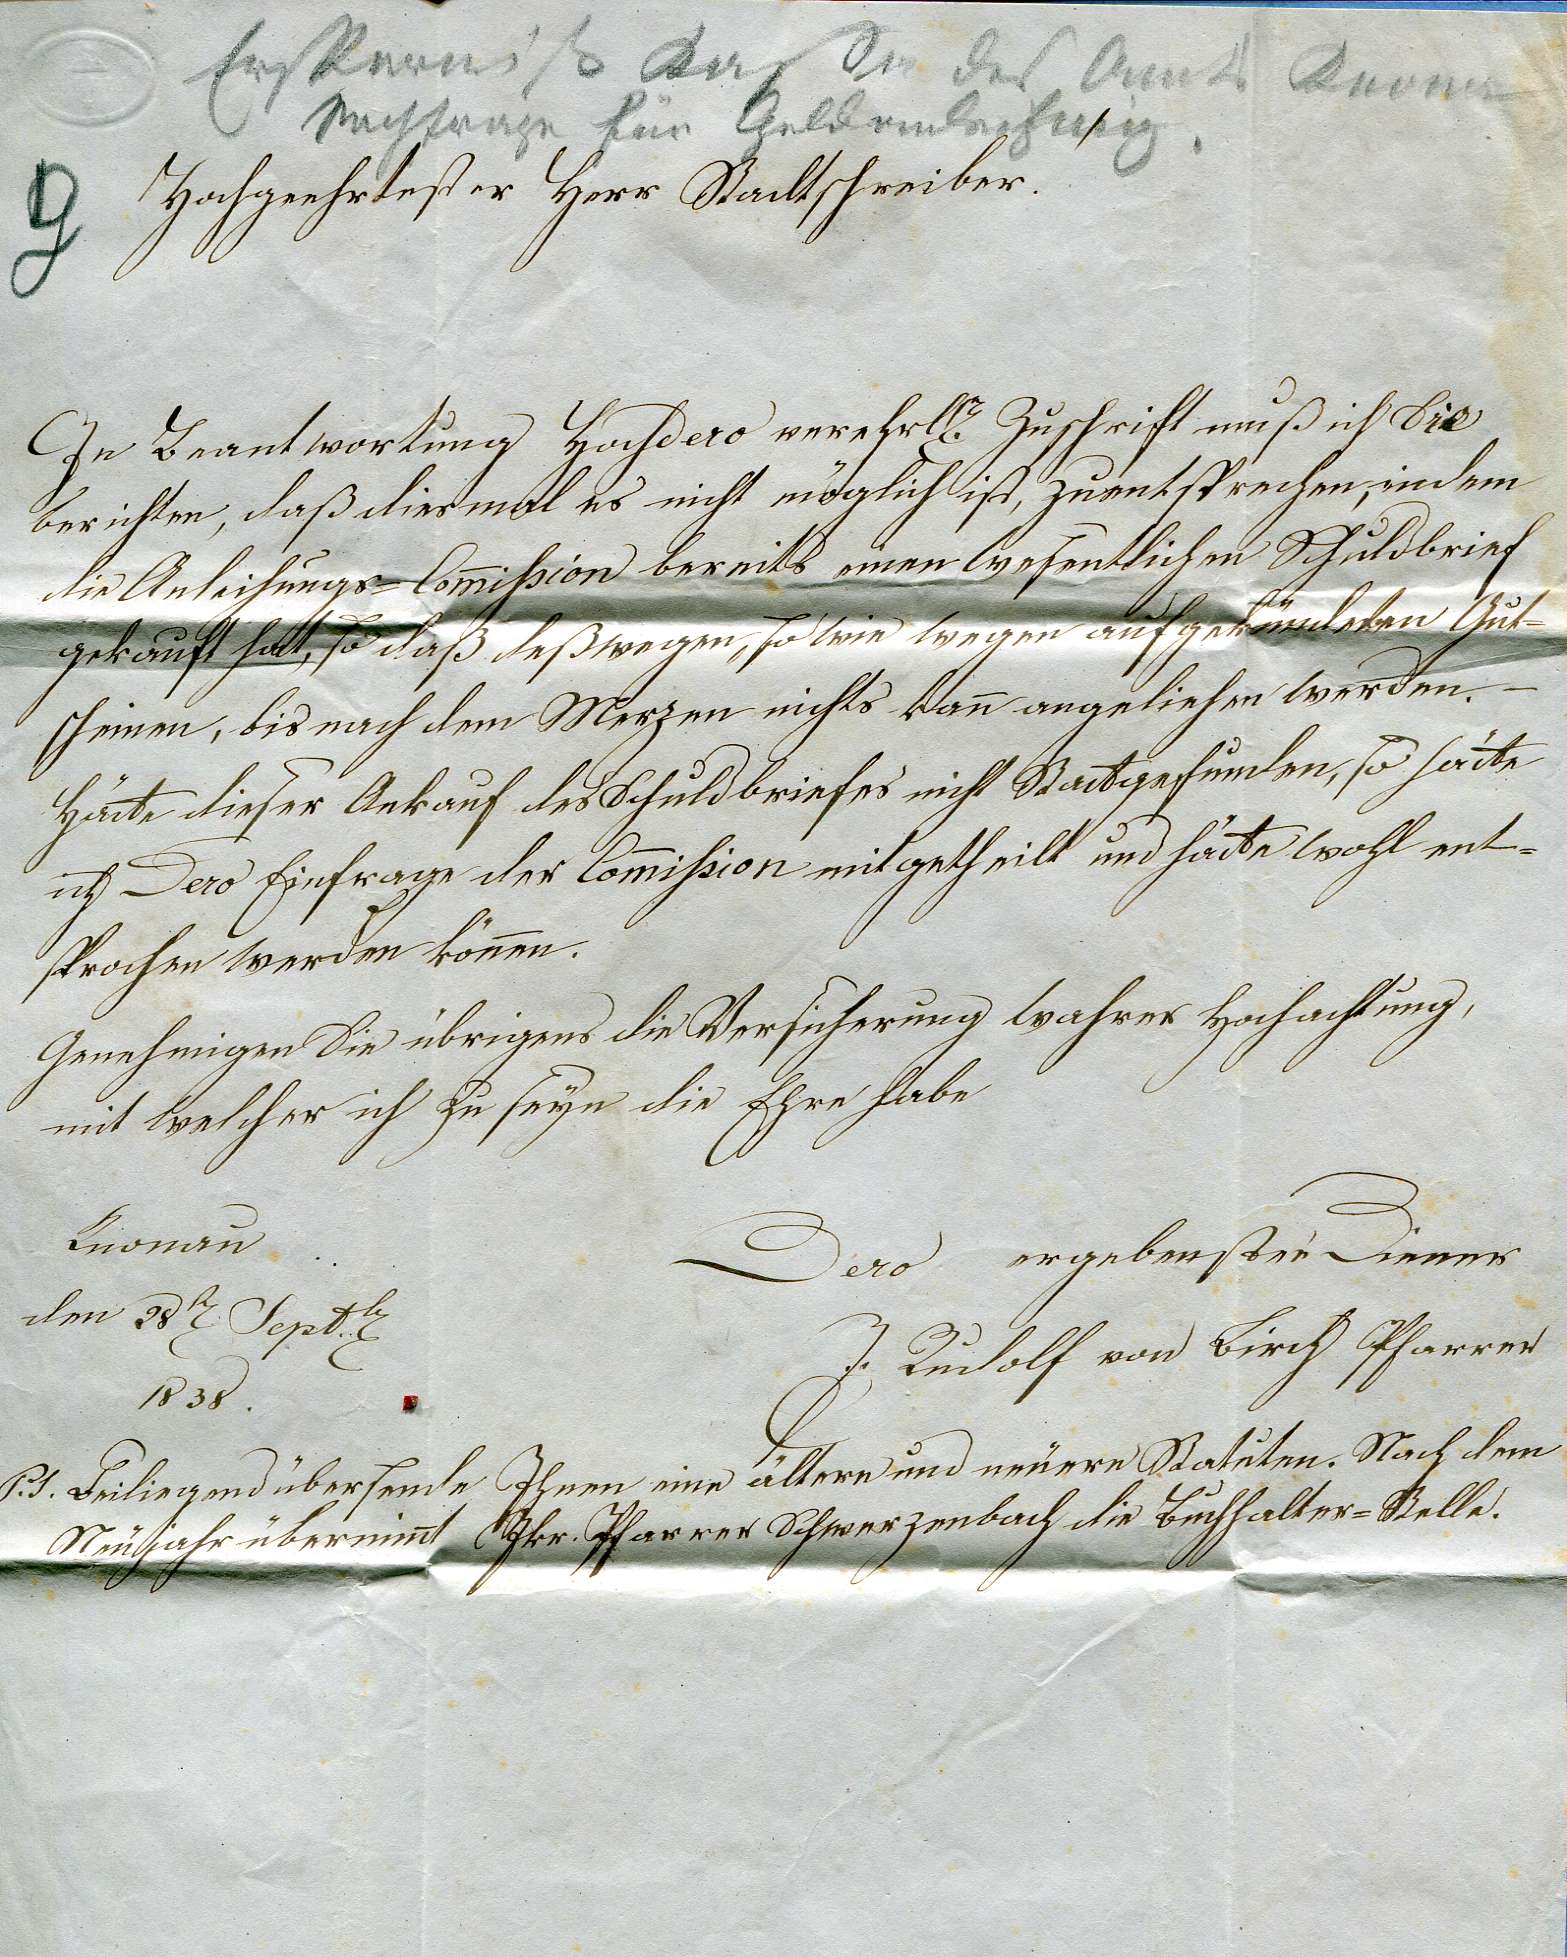 Ersparniß Kassa des Amts Knonau
Nachfrage für Geldentleihung.
g
Hochgeehrtester Herr Stadtschreiber.
In Beantwortung Hochdero verehrl. Zuschrift muß ich Sie
berichten, daß diesmal es nicht möglich ist, zuentsprechen, indem
die Anleihungs=Com̄ißion bereits einen wesentlichen Schuldbrief
gekauft hat, so daß deßwegen, so wie wegen aufgekündeten Gut-
scheinen, bis nach dem Merzen nichts kan̄ angeliehen werden. –
Hätte dieser Ankauf des Schuldbriefes nicht Stattgefunden, so hätte
ich Dero Einfrage der Com̄ißion mitgetheilt und hätte wohl ent-
sprochen werden kön̄en.
Genehmigen Sie übrigens die Versicherung wahrer Hochachtung,
mit welcher ich zu seyn die Ehre habe
Knonau
den 28. Sept.
1838.
Dero ergebenster Diener
J. Rudolf von Birch Pfarrer
P.S. Beiliegend übersende Ihnen eine ältere und neüere Statuten. Nach dem
Neüjahr übernim̄t Jkr. Pfarrer Schwerzenbach die Buchhalter=Stelle.